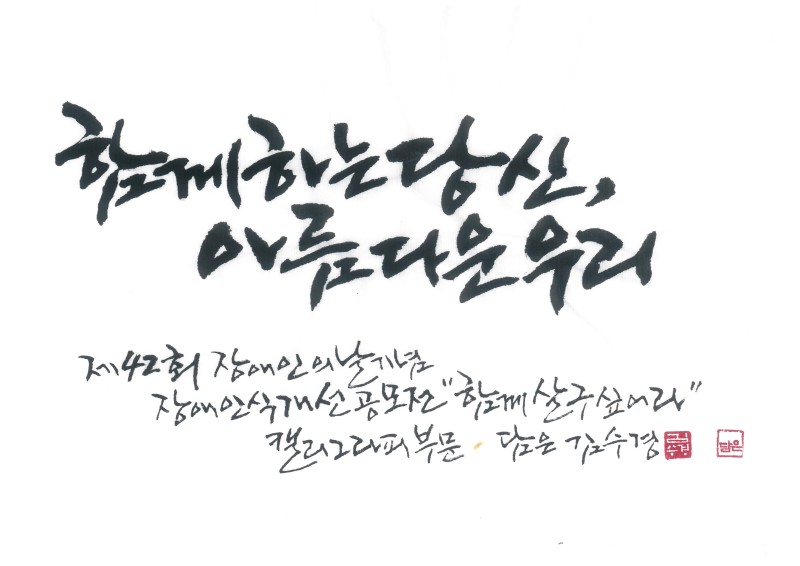 함께하는당신,
아름다운우리
제42회 장애인의날기념
장애인식개선공모전"함께살구싶어라"
캘리그라피부문 · 담은 김수경
담은